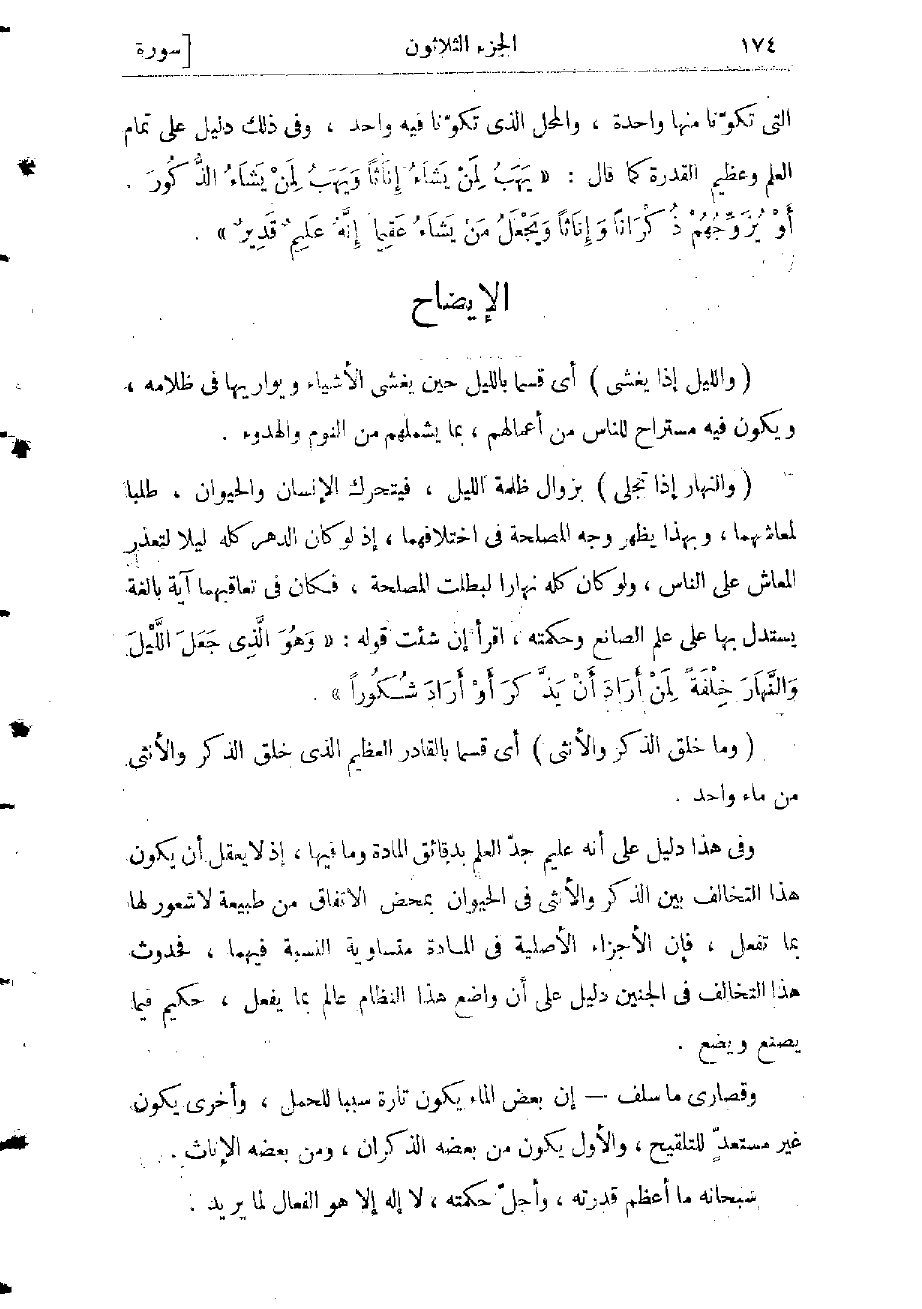 ١٧٤ الجزء الثلاثون [سورة
التى تكوّنا منها واحدة ، والمحل الذى تكوّنا فيه واحد ، وفى ذلك دليل على تمام
العلم وعظيم القدرة كما قال : « يَهَبُ لِمَنْ يَشَاءُ إِنَاثًا وَيَهَبُ لِمَنْ يَشَاءُ الذُّكُورَ .
أَوْ يُزَوِّجُهُمْ ذُكْرَانًا وَإِنَاثًا وَيَجْعَلُ مَنْ يَشَاءُ عَقِيما إِنَّهُ عَلِيمٌ قَدِيرٌ » .
الإيضاح
( والليل إذا يغشى ) أى قسما بالليل حين يغشى الأشياء ويواريها فى ظلامه ،
ويكون فيه مستراح للناس من أعمالهم ، بما يشملهم من النوم والهدوء .
( والنهار إذا تجلى ) بزوال ظلمة الليل ، فيتحرك الإنسان والحيوان ، طلبا
لمعاشهما ، وبهذا يظهر وجه المصلحة فى اختلافهما ، إذ لو كان الدهر كله ليلا لتعذر
المعاش على الناس ، ولو كان كله نهارا لبطلت المصلحة ، فكان فى تعاقبهما آية بالغة
يستدل بها على علم الصانع وحكمته ، اقرأ إن شئت قوله : « وَهُوَ الَّذِى جَعَلَ اللَّيْلَ
وَالنَّهَارَ خِلْفَةً لِمَنْ أَرَادَ أَنْ يَذَّكَّرَ أَوْ أَرَادَ شُكُوراً » .
( وما خلق الذكر والأنثى ) أى قسما بالقادر العظيم الذى خلق الذكر والأنثى
من ماء واحد .
وفى هذا دليل على أنه عليم جدّ العلم بدقائق المادة وما فيها ، إذ لا يعقل أن يكون
هذا التخالف بين الذكر والأنثى فى الحيوان بمحض الاتفاق من طبيعة لا شعور لها
بما تفعل ، فإن الأجزاء الأصلية فى المادة متساوية النسبة فيهما ، فحدوث
هذا التخالف فى الجنين دليل على أن واضع هذا النظام عالم بما يفعل ، حكيم فيما
يصنع ويضع .
وقصارى ما سلف — إن بعض الماء يكون تارة سببا للحمل ، وأخرى يكون
غير مستعدٍّ للتلقيح ، والأول يكون من بعضه الذكران ، ومن بعضه الإناث .
سبحانه ما أعظم قدرته ، وأجلّ حكمته ، لا إله إلا هو الفعال لما يريد .